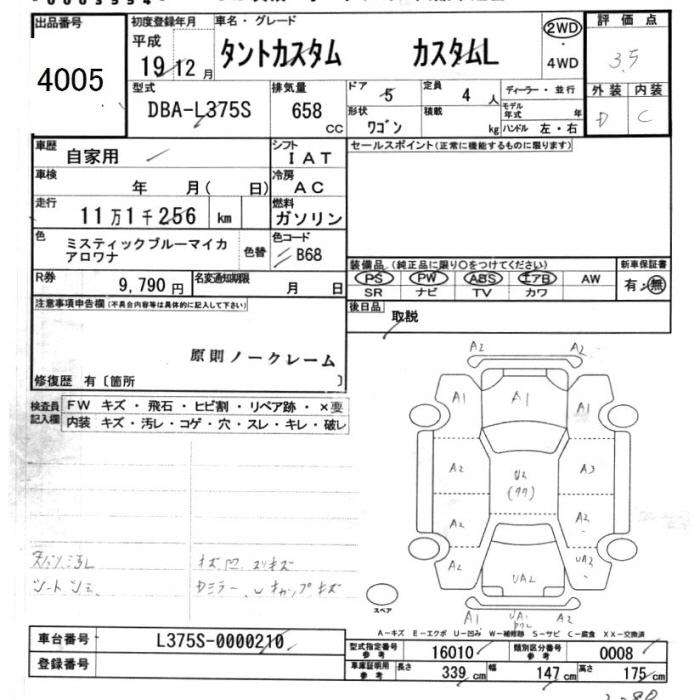 出品番号 初度登録年月 車名・グレード 評価点
4005 平成 19年12月 タントカスタム カスタムL 2WD・4WD 3.5
型式 排気量 ドア 5 定員 4人 ディーラー・並行 外装 内装
DBA-L375S 658cc 形状 ワゴン 積載 kg モデル年式 年 ハンドル 左・右 D C
車歴 自家用 シフト IAT セールスポイント(正常に機能するものに限ります)
車検 年 月( 日) 冷房 AC
走行 11万1千256 km 燃料 ガソリン
色 ミスティックブルーマイカ 色替 色コード B68
アロワナ
装備品 (純正品に限り○をつけてください) 新車保証書
PS PW ABS エアB AW 有・無
SR ナビ TV カワ
R券 9,790円 名変通知期限 月 日
後日品 取説
注意事項申告欄 (不具合内容等は具体的に記入して下さい)
原則ノークレーム
修復歴 有〔箇所 〕
検査員記入欄 FW キズ・飛石・ヒビ割・リペア跡・×要
内装 キズ・汚レ・コゲ・穴・スレ・キレ・破レ
A2 A2
A1 A1 A1
A2 U2 A3
A2 A2
A2 UA2
A1 A2
スペア
A-キズ E-エクボ U-凹み W-補修跡 S-サビ C-腐食 XX-交換済
車台番号 L375S-0000210
登録番号
型式指定番号 参考 16010 類別区分番号 参考 0008
車庫証明用 参考 長さ 339cm 幅 147cm 高さ 175cm